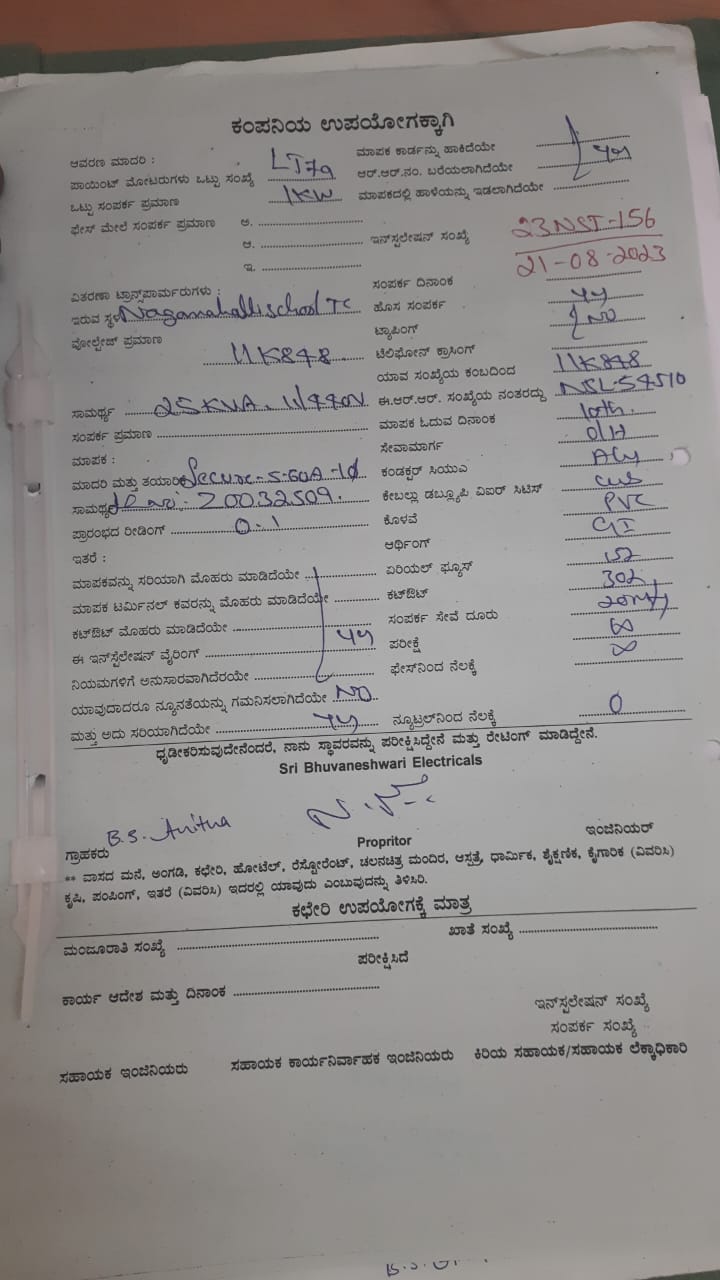 ಕಂಪನಿಯ ಉಪಯೋಗಕ್ಕಾಗಿ
ಆವರಣ ಮಾದರಿ : LT7a ಮಾಪಕ ಕಾರ್ಡನ್ನು ಹಾಕಿದೆಯೇ
ಪಾಯಿಂಟ್ ಮೋಟರುಗಳು ಒಟ್ಟು ಸಂಖ್ಯೆ ಆರ್.ಆರ್.ನಂ. ಬರೆಯಲಾಗಿದೆಯೇ
ಒಟ್ಟು ಸಂಪರ್ಕ ಪ್ರಮಾಣ 1KW ಮಾಪಕದಲ್ಲಿ ಹಾಳೆಯನ್ನು ಇಡಲಾಗಿದೆಯೇ
ಫೇಸ್ ಮೇಲೆ ಸಂಪರ್ಕ ಪ್ರಮಾಣ ಅ.
ಆ. ಇನ್‌ಸ್ಟಲೇಷನ್ ಸಂಖ್ಯೆ 23NST-156
ಇ. 21-08-2023
ವಿತರಣಾ ಟ್ರಾನ್ಸ್‌ಫಾರ್ಮರುಗಳು : ಸಂಪರ್ಕ ದಿನಾಂಕ
ಇರುವ ಸ್ಥಳ Nagamahalli school TC ಹೊಸ ಸಂಪರ್ಕ
ವೋಲ್ಟೇಜ್ ಪ್ರಮಾಣ 11K848 ಟ್ಯಾಪಿಂಗ್ NO
ಟೆಲಿಫೋನ್ ಕ್ರಾಸಿಂಗ್
ಯಾವ ಸಂಖ್ಯೆಯ ಕಂಬದಿಂದ 11K848
ಸಾಮರ್ಥ್ಯ 25KVA. ಈ.ಆರ್.ಆರ್. ಸಂಖ್ಯೆಯ ನಂತರದ್ದು NSL-54510
ಸಂಪರ್ಕ ಪ್ರಮಾಣ ಮಾಪಕ ಓದುವ ದಿನಾಂಕ 10th.
ಮಾಪಕ : ಸೇವಾಮಾರ್ಗ O/H
ಮಾದರಿ ಮತ್ತು ತಯಾರಿಕೆ Secure-5-60A-1Ø ಕಂಡಕ್ಟರ್ ಸಿಯುಎ Aly
ಸಾಮರ್ಥ್ಯ 20032509. ಕೇಬಲ್ಲು ಡಬ್ಲ್ಯೂಪಿ ವಿಐರ್ ಸಿಟಿಸ್
ಪ್ರಾರಂಭದ ರೀಡಿಂಗ್ 0.1 ಕೊಳವೆ PVC
ಇತರೆ : ಆರ್ಥಿಂಗ್ GI
ಮಾಪಕವನ್ನು ಸರಿಯಾಗಿ ಮೊಹರು ಮಾಡಿದೆಯೇ ಏರಿಯಲ್ ಫ್ಯೂಸ್
ಮಾಪಕ ಟರ್ಮಿನಲ್ ಕವರನ್ನು ಮೊಹರು ಮಾಡಿದೆಯೇ ಕಟ್‌ಔಟ್
ಕಟ್‌ಔಟ್ ಮೊಹರು ಮಾಡಿದೆಯೇ ಸಂಪರ್ಕ ಸೇವೆ ದೂರು
ಈ ಇನ್‌ಸ್ಟಲೇಷನ್ ವೈರಿಂಗ್ ಪರೀಕ್ಷೆ ∞
ನಿಯಮಗಳಿಗೆ ಅನುಸಾರವಾಗಿದೆರಯೇ ಫೇಸ್‌ನಿಂದ ನೆಲಕ್ಕೆ ∞
ಯಾವುದಾದರೂ ನ್ಯೂನತೆಯನ್ನು ಗಮನಿಸಲಾಗಿದೆಯೇ NO
ಮತ್ತು ಅದು ಸರಿಯಾಗಿದೆಯೇ ನ್ಯೂಟ್ರಲ್‌ನಿಂದ ನೆಲಕ್ಕೆ 0
ಧೃಡೀಕರಿಸುವುದೇನೆಂದರೆ, ನಾನು ಸ್ಥಾವರವನ್ನು ಪರೀಕ್ಷಿಸಿದ್ದೇನೆ ಮತ್ತು ರೇಟಿಂಗ್ ಮಾಡಿದ್ದೇನೆ.
Sri Bhuvaneshwari Electricals
B.S. Anitha
ಗ್ರಾಹಕರು Propritor ಇಂಜಿನಿಯರ್
** ವಾಸದ ಮನೆ, ಅಂಗಡಿ, ಕಛೇರಿ, ಹೋಟೆಲ್, ರೆಸ್ಟೋರೆಂಟ್, ಚಲನಚಿತ್ರ ಮಂದಿರ, ಆಸ್ಪತ್ರೆ, ಧಾರ್ಮಿಕ, ಶೈಕ್ಷಣಿಕ, ಕೈಗಾರಿಕ (ವಿವರಿಸಿ)
ಕೃಷಿ, ಪಂಪಿಂಗ್, ಇತರೆ (ವಿವರಿಸಿ) ಇದರಲ್ಲಿ ಯಾವುದು ಎಂಬುವುದನ್ನು ತಿಳಿಸಿರಿ.
ಕಛೇರಿ ಉಪಯೋಗಕ್ಕೆ ಮಾತ್ರ
ಮಂಜೂರಾತಿ ಸಂಖ್ಯೆ ಖಾತೆ ಸಂಖ್ಯೆ
ಪರೀಕ್ಷಿಸಿದೆ
ಕಾರ್ಯ ಆದೇಶ ಮತ್ತು ದಿನಾಂಕ
ಇನ್‌ಸ್ಟಲೇಷನ್ ಸಂಖ್ಯೆ
ಸಂಪರ್ಕ ಸಂಖ್ಯೆ
ಸಹಾಯಕ ಇಂಜಿನಿಯರು ಸಹಾಯಕ ಕಾರ್ಯನಿರ್ವಾಹಕ ಇಂಜಿನಿಯರು ಕಿರಿಯ ಸಹಾಯಕ/ಸಹಾಯಕ ಲೆಕ್ಕಾಧಿಕಾರಿ